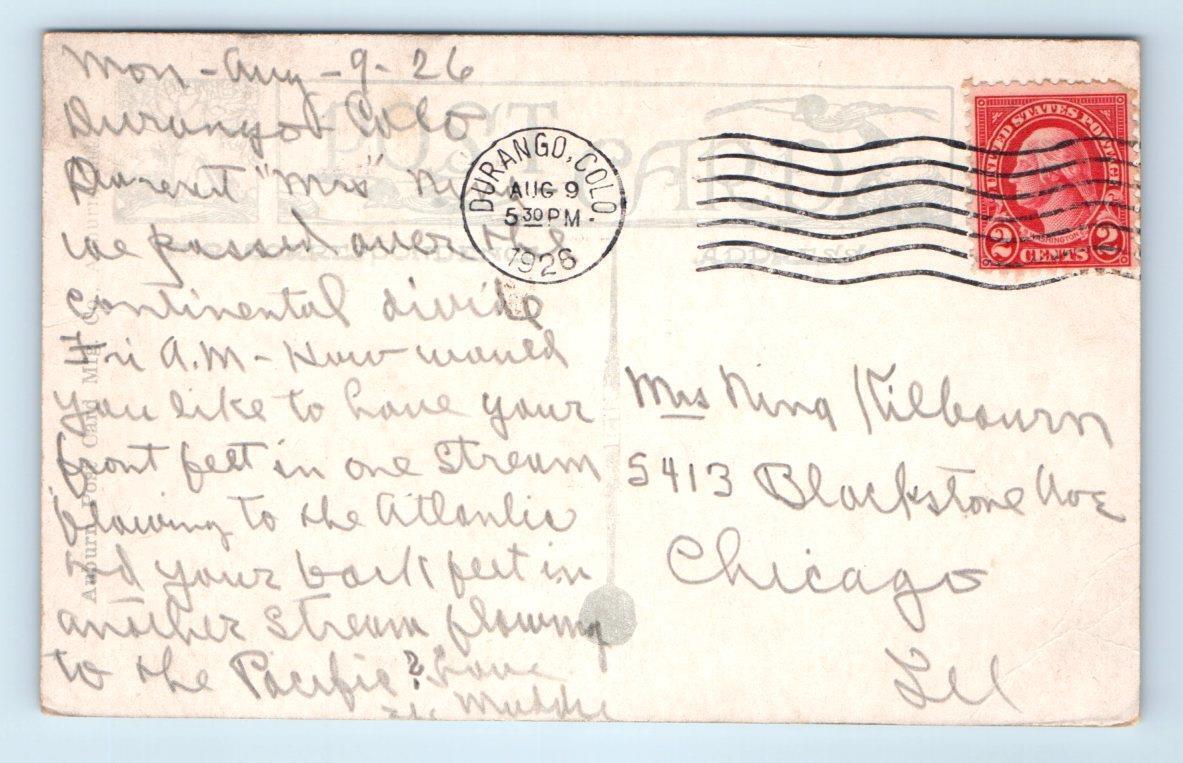 Mon - Aug - 9 - 26
Durango Colo
Dearest "Mrs" N
we passed over the
continental divide
in A.M - How would
you like to have your
front feet in one stream
flowing to the Atlantic
and your back feet in
another stream flowing
to the Pacific? Love
POST CARD
CORRESPONDENCE
ADDRESS
Auburn Post Card Mfg. Co.
DURANGO, COLO.
AUG 9
5 30 PM
1926
UNITED STATES POSTAGE
WASHINGTON
2 CENTS 2
Mrs Nina Kilbourn
5413 Blackstone Ave
Chicago
Ill